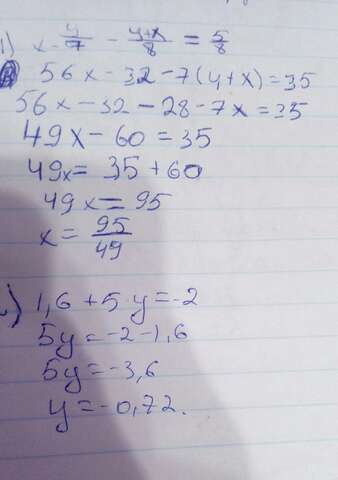 1) x - 4/7 - 4+x/8 = 5/8
56x - 32 - 7(4+x) = 35
56x - 32 - 28 - 7x = 35
49x - 60 = 35
49x = 35 + 60
49x = 95
x = 95/49
1,6 + 5·y = -2
5y = -2 - 1,6
5y = -3,6
y = -0,72.